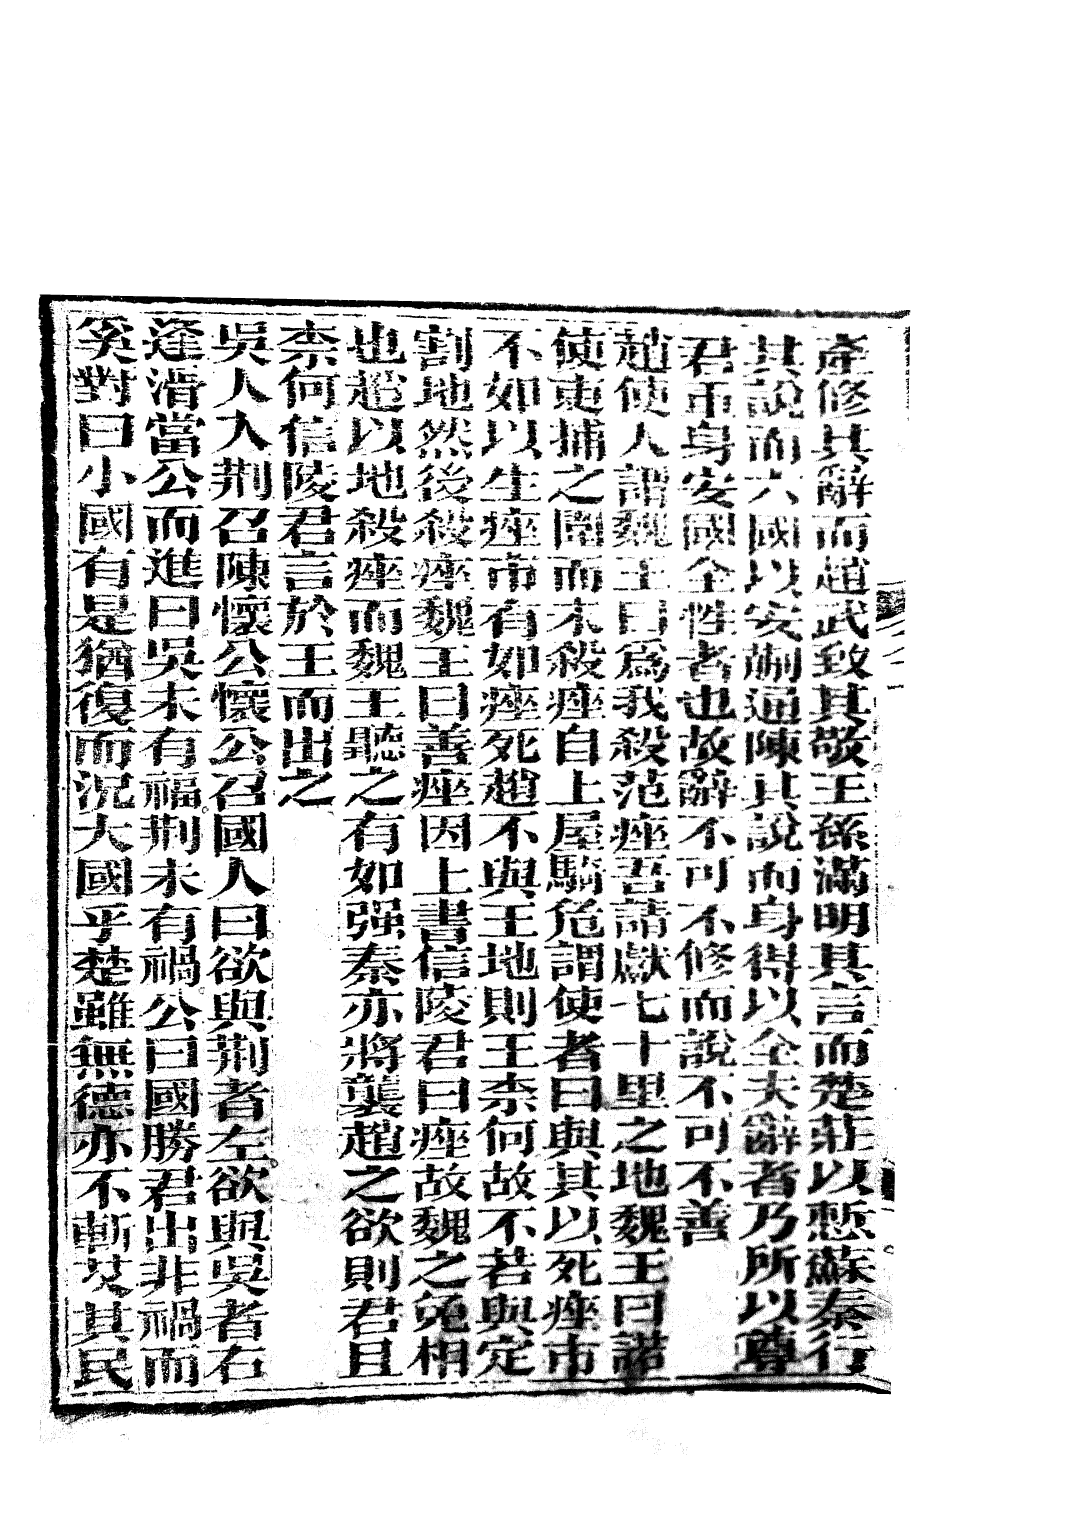 產修其辭而趙武致其敬王孫滿明其言而楚莊以慙蘇秦行
其說而六國以安蒯通陳其說而身得以全夫辭者乃所以尊
君重身安國全性者也故辭不可不修而說不可不善
趙使人謂魏王曰爲我殺范痤吾請獻七十里之地魏王曰諾
使吏捕之圍而未殺痤自上屋騎危謂使者曰與其以死痤市
不如以生痤市有如痤死趙不與王地則王柰何故不若與定
割地然後殺痤魏王曰善痤因上書信陵君曰痤故魏之免相
也趙以地殺痤而魏王聽之有如强秦亦將襲趙之欲則君且
柰何信陵君言於王而出之
吳人入荆召陳懷公懷公召國人曰欲與荆者左欲與吳者右
逢滑當公而進曰吳未有福荆未有禍公曰國勝君出非禍而
奚對曰小國有是猶復而況大國乎楚雖無德亦不斬艾其民